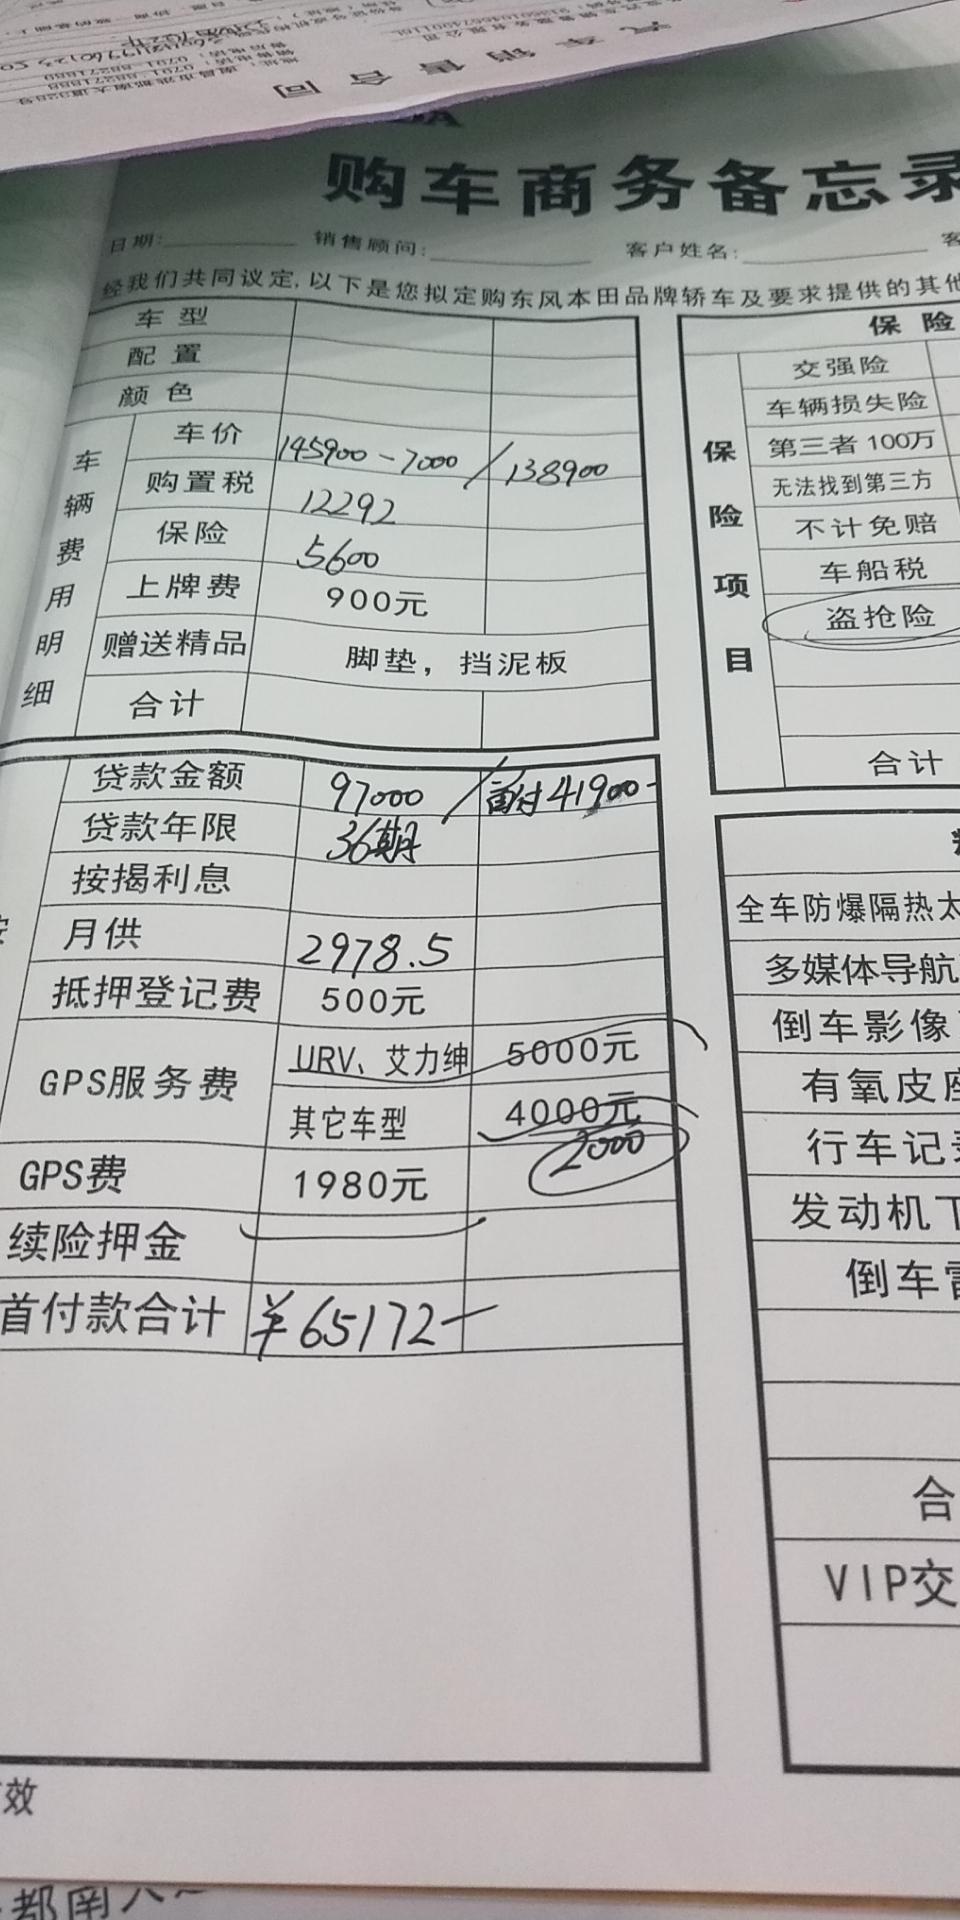 汽车销售合同
购车商务备忘录
日期: 销售顾问: 客户姓名: 客
经我们共同议定,以下是您拟定购东风本田品牌轿车及要求提供的其他
车型
配置
颜色
车辆费用明细
车价 145900-7000 / 138900
购置税 12292
保险 5600
上牌费 900元
赠送精品 脚垫，挡泥板
合计
贷款金额 97000 / 首付41900-
贷款年限 36期
按揭利息
月供 2978.5
抵押登记费 500元
GPS服务费 URV、艾力绅 5000元
其它车型 4000元
2000
GPS费 1980元
续险押金
首付款合计 ¥65172-
保险
保险项目
交强险
车辆损失险
第三者100万
无法找到第三方
不计免赔
车船税
盗抢险
合计
全车防爆隔热太
多媒体导航
倒车影像
有氧皮座
行车记录
发动机下
倒车雷
合
VIP交
效
都南大